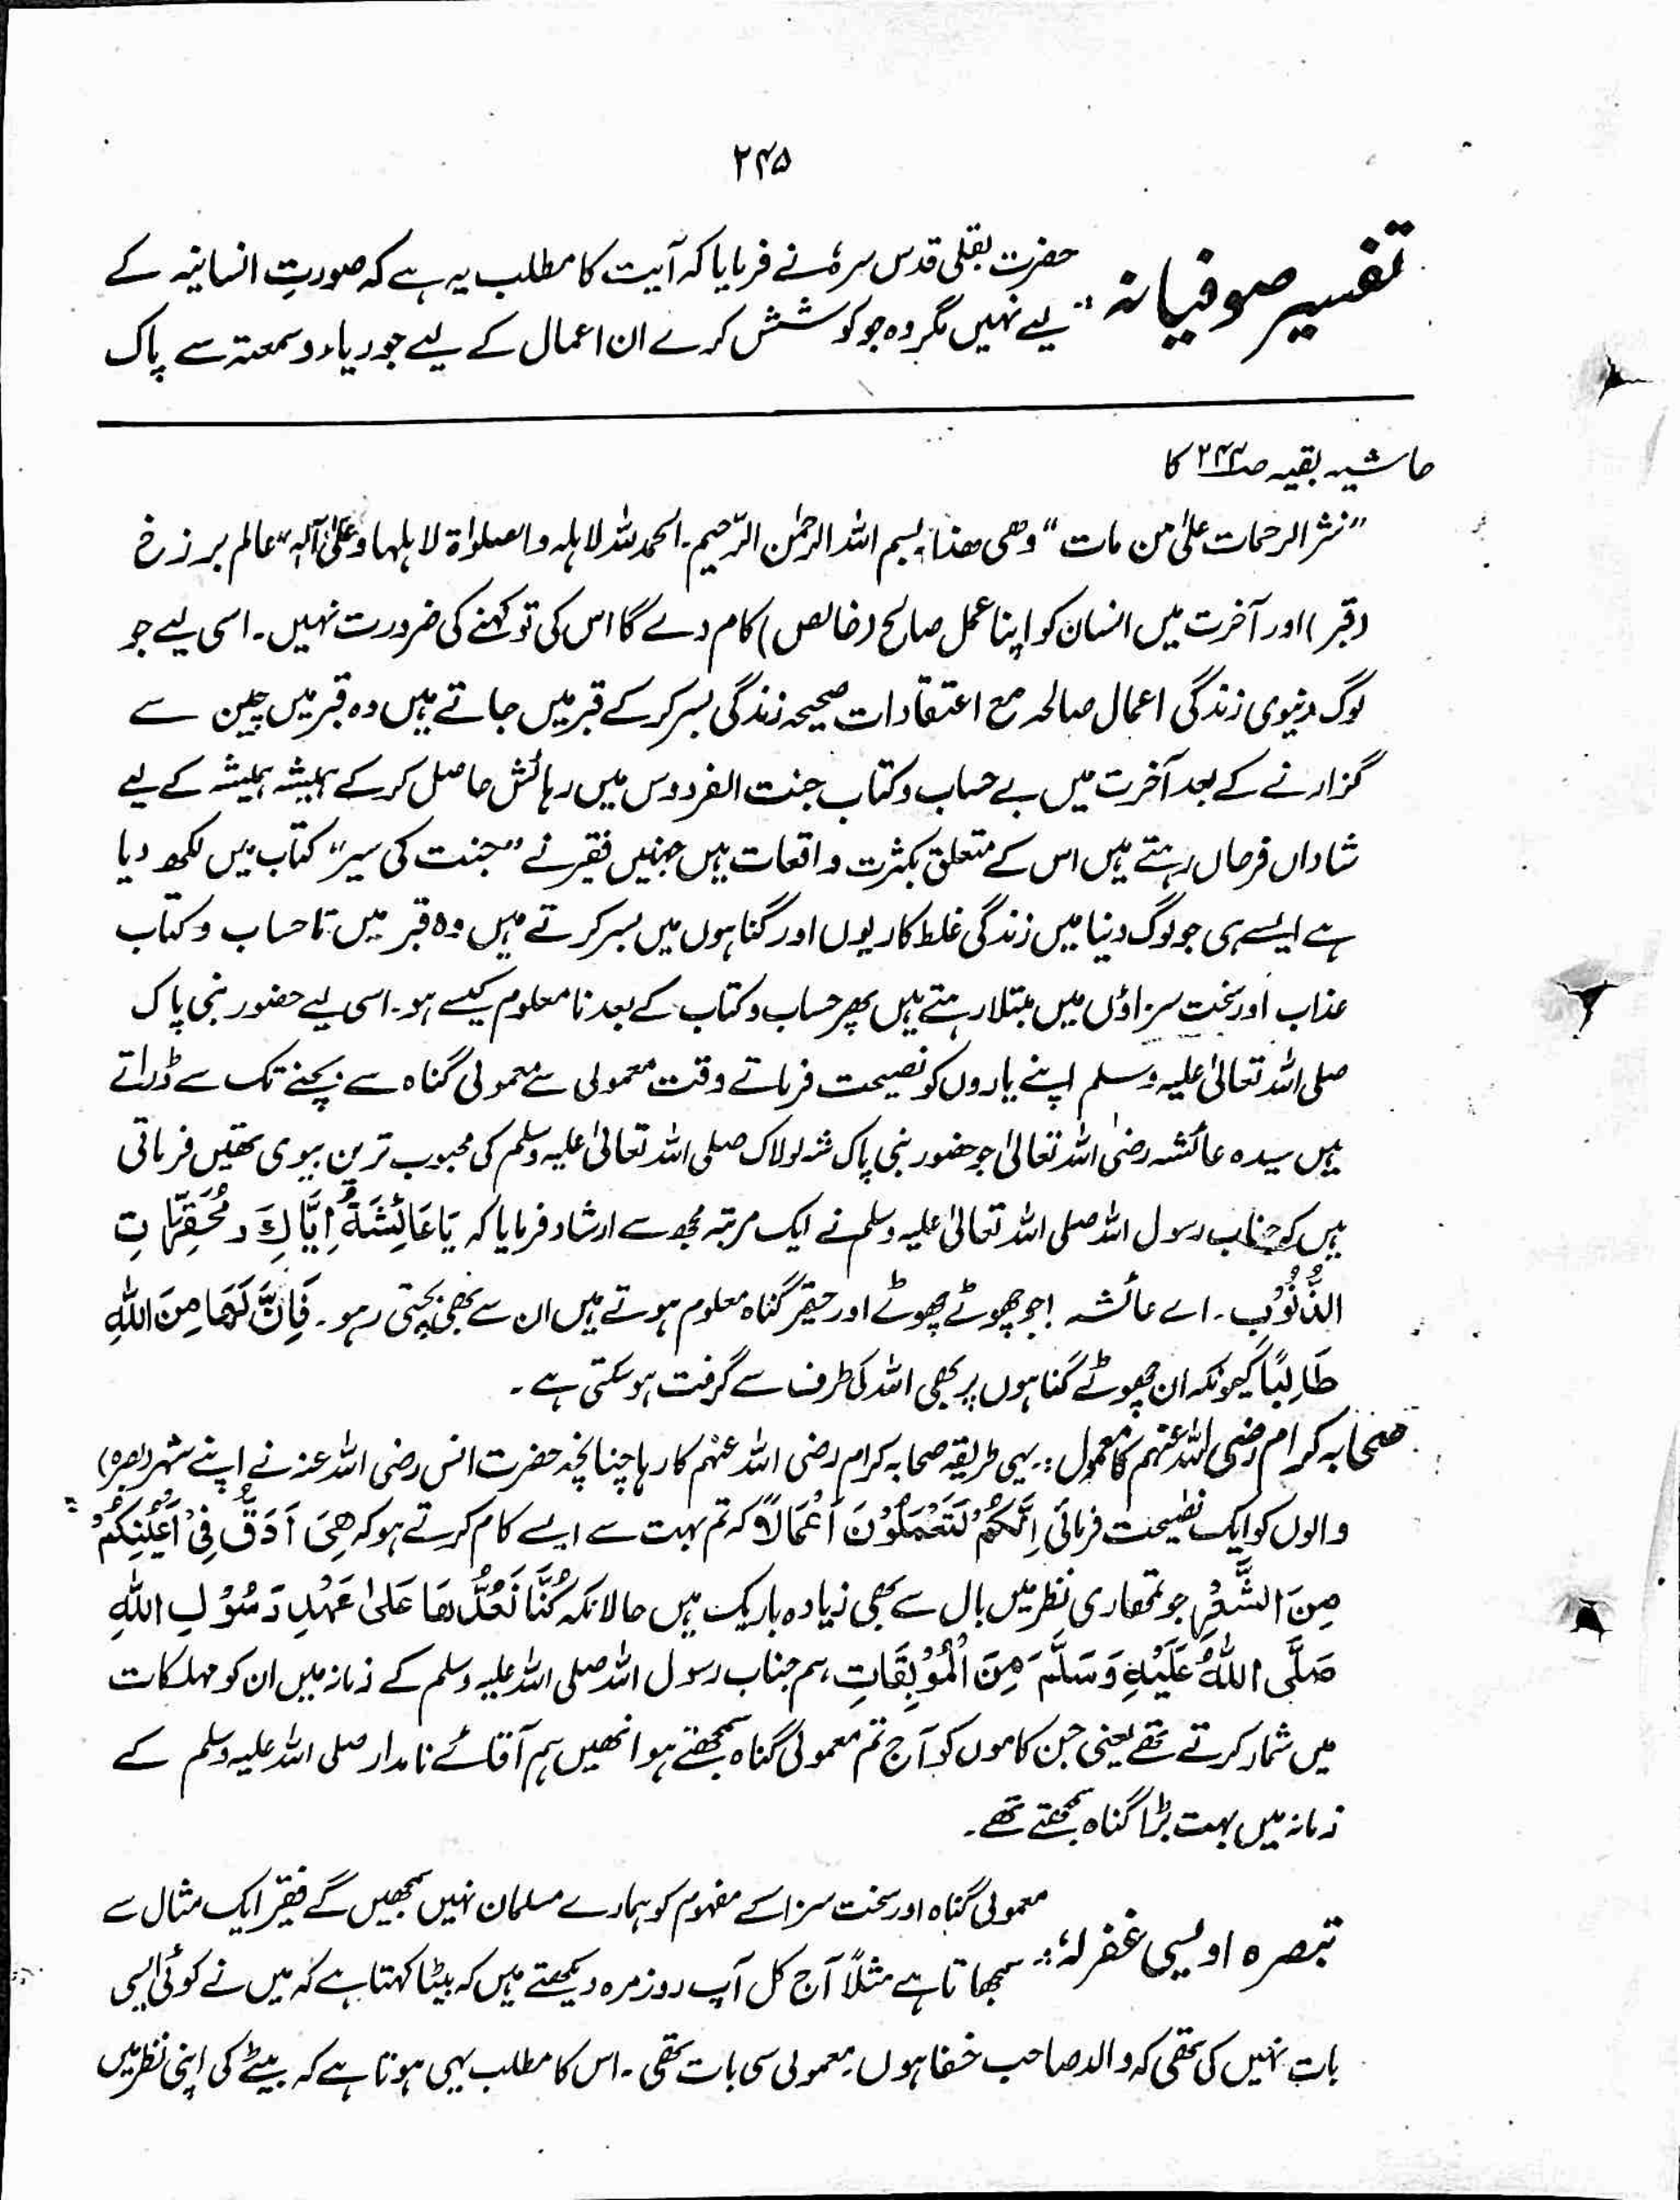 ۲۴۵
تفسیر صوفیانہ :- حضرت بقلی قدس سرہٗ نے فرمایا کہ آیت کا مطلب یہ ہے کہ صورتِ انسانیہ کے
لیے نہیں مگر وہ جو کوشش کرے ان اعمال کے لیے جو ریاء و سمعۃ سے پاک
حاشیہ بقیہ صـ کا
”نثر الرحمات علیٰ من مات“ وھی ھذا: بسم اللہ الرحمٰن الرّحیم۔ الحمد للہ لاہلہ والصلوٰۃ لاہلہا وعلیٰ آلہٖ“ عالم برزخ
(قبر) اور آخرت میں انسان کو اپنا عمل صالح (خالص) کام دے گا اس کی تو کہنے کی ضرورت نہیں۔ اسی لیے جو
لوگ دنیوی زندگی اعمال صالحہ مع اعتقادات صحیحہ زندگی بسر کر کے قبر میں جاتے ہیں وہ قبر میں چین سے
گزارنے کے بعد آخرت میں بے حساب و کتاب جنت الفردوس میں رہائش حاصل کر کے ہمیشہ ہمیشہ کے لیے
شاداں فرحاں رہتے ہیں اس کے متعلق بکثرت واقعات ہیں جنہیں فقیر نے ”جنت کی سیر“ کتاب میں لکھ دیا
ہے ایسے ہی جو لوگ دنیا میں زندگی غلط کاریوں اور گناہوں میں بسر کرتے ہیں وہ قبر میں تا حساب و کتاب
عذاب اور سخت سزاؤں میں مبتلا رہتے ہیں پھر حساب و کتاب کے بعد نامعلوم کیسے ہو۔ اسی لیے حضور نبی پاک
صلی اللہ تعالیٰ علیہ وسلم اپنے یاروں کو نصیحت فرماتے وقت معمولی سے معمولی گناہ سے بچنے تک سے ڈراتے
ہیں سیدہ عائشہ رضی اللہ تعالیٰ جو حضور نبی پاک شہ لولاک صلی اللہ تعالیٰ علیہ وسلم کی محبوب ترین بیوی تھیں فرماتی
ہیں کہ جناب رسول اللہ صلی اللہ تعالیٰ علیہ وسلم نے ایک مرتبہ مجھ سے ارشاد فرمایا کہ یَا عَائِشَةُ اِیَّاكِ و مُحَقِّرَاتِ
الذُّنُوْبِ۔ اے عائشہ! جو چھوٹے چھوٹے اور حقیر گناہ معلوم ہوتے ہیں ان سے بھی بچتی رہو۔ فَاِنَّ لَهَا مِنَ اللّٰهِ
طَالِبًا کیونکہ ان چھوٹے گناہوں پر بھی اللہ کی طرف سے گرفت ہو سکتی ہے۔
صحابہ کرام رضی اللہ عنہم کا معمول :۔ یہی طریقہ صحابہ کرام رضی اللہ عنہم کا رہا چنانچہ حضرت انس رضی اللہ عنہ نے اپنے شہر (بصرہ)
والوں کو ایک نصیحت فرمائی اِنَّكُمْ لَتَعْمَلُوْنَ اَعْمَالًا کہ تم بہت سے ایسے کام کرتے ہو کہ هِیَ اَدَقُّ فِیْ اَعْیُنِكُمْ
مِنَ الشَّعْرِ جو تمھاری نظر میں بال سے بھی زیادہ باریک ہیں حالانکہ كُنَّا نَعُدُّهَا عَلیٰ عَهْدِ رَسُوْلِ اللّٰهِ
صَلَّى اللّٰهُ عَلَیْهِ وَسَلَّمَ مِنَ الْمُوْبِقَاتِ، ہم جناب رسول اللہ صلی اللہ علیہ وسلم کے زمانہ میں ان کو مہلکات
میں شمار کرتے تھے یعنی جن کاموں کو آج تم معمولی گناہ سمجھتے ہو انھیں ہم آقائے نامدار صلی اللہ علیہ وسلم کے
زمانہ میں بہت بڑا گناہ سمجھتے تھے۔
تبصرہ اویسی غفرلہٗ :۔ معمولی گناہ اور سخت سزا کے مفہوم کو ہمارے مسلمان نہیں سمجھیں گے فقیر ایک مثال سے
سمجھاتا ہے مثلاً آج کل آپ روزمرہ دیکھتے ہیں کہ بیٹا کہتا ہے کہ میں نے کوئی ایسی
بات نہیں کی تھی کہ والد صاحب خفا ہوں۔ معمولی سی بات تھی۔ اس کا مطلب یہی ہوتا ہے کہ بیٹے کی اپنی نظر میں